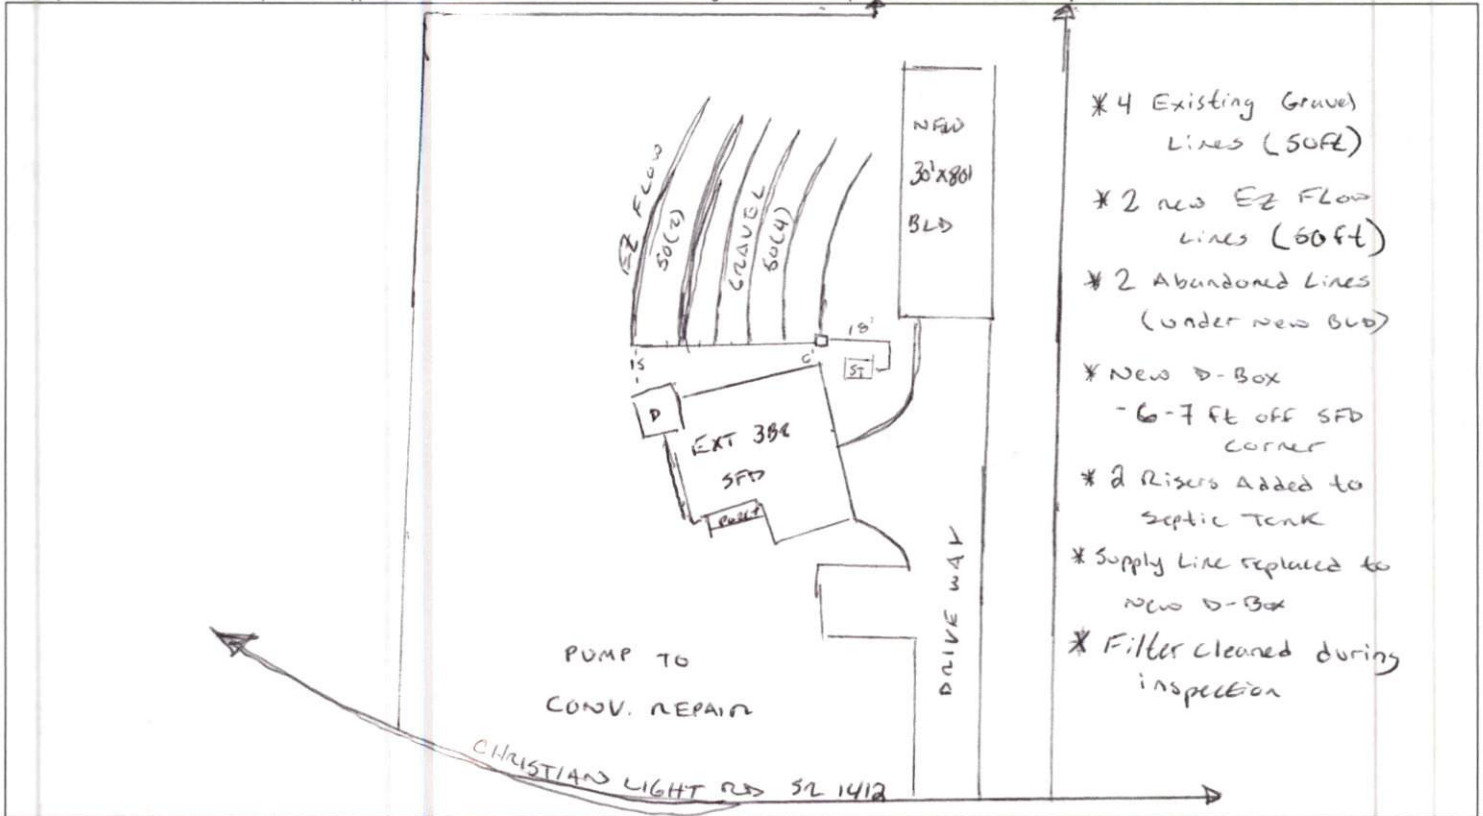 NEW
30'x80'
BLD
EZ FLOW
50(2)
GRAVEL
50(4)
18'
ST
15'
6'
D
EXT 3BR
SFD
DRIVE WAY
PUMP TO
CONV. REPAIR
CHRISTIAN LIGHT RD SR 1412
* 4 Existing Gravel
Lines (50ft)
* 2 new EZ FLOW
Lines (50ft)
* 2 Abandoned Lines
(under New BLD)
* New D-Box
- 6-7 ft off SFD
corner
* 2 Risers Added to
Septic Tank
* Supply Line replaced to
New D-Box
* Filter cleaned during
inspection